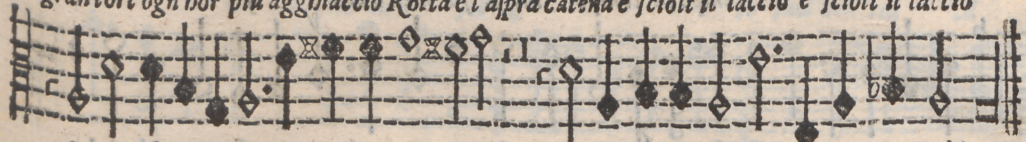 gran tort ogn hor piu agghiaccio Rotta è l aspra catena e sciolt il laccio e sciolt il laccio